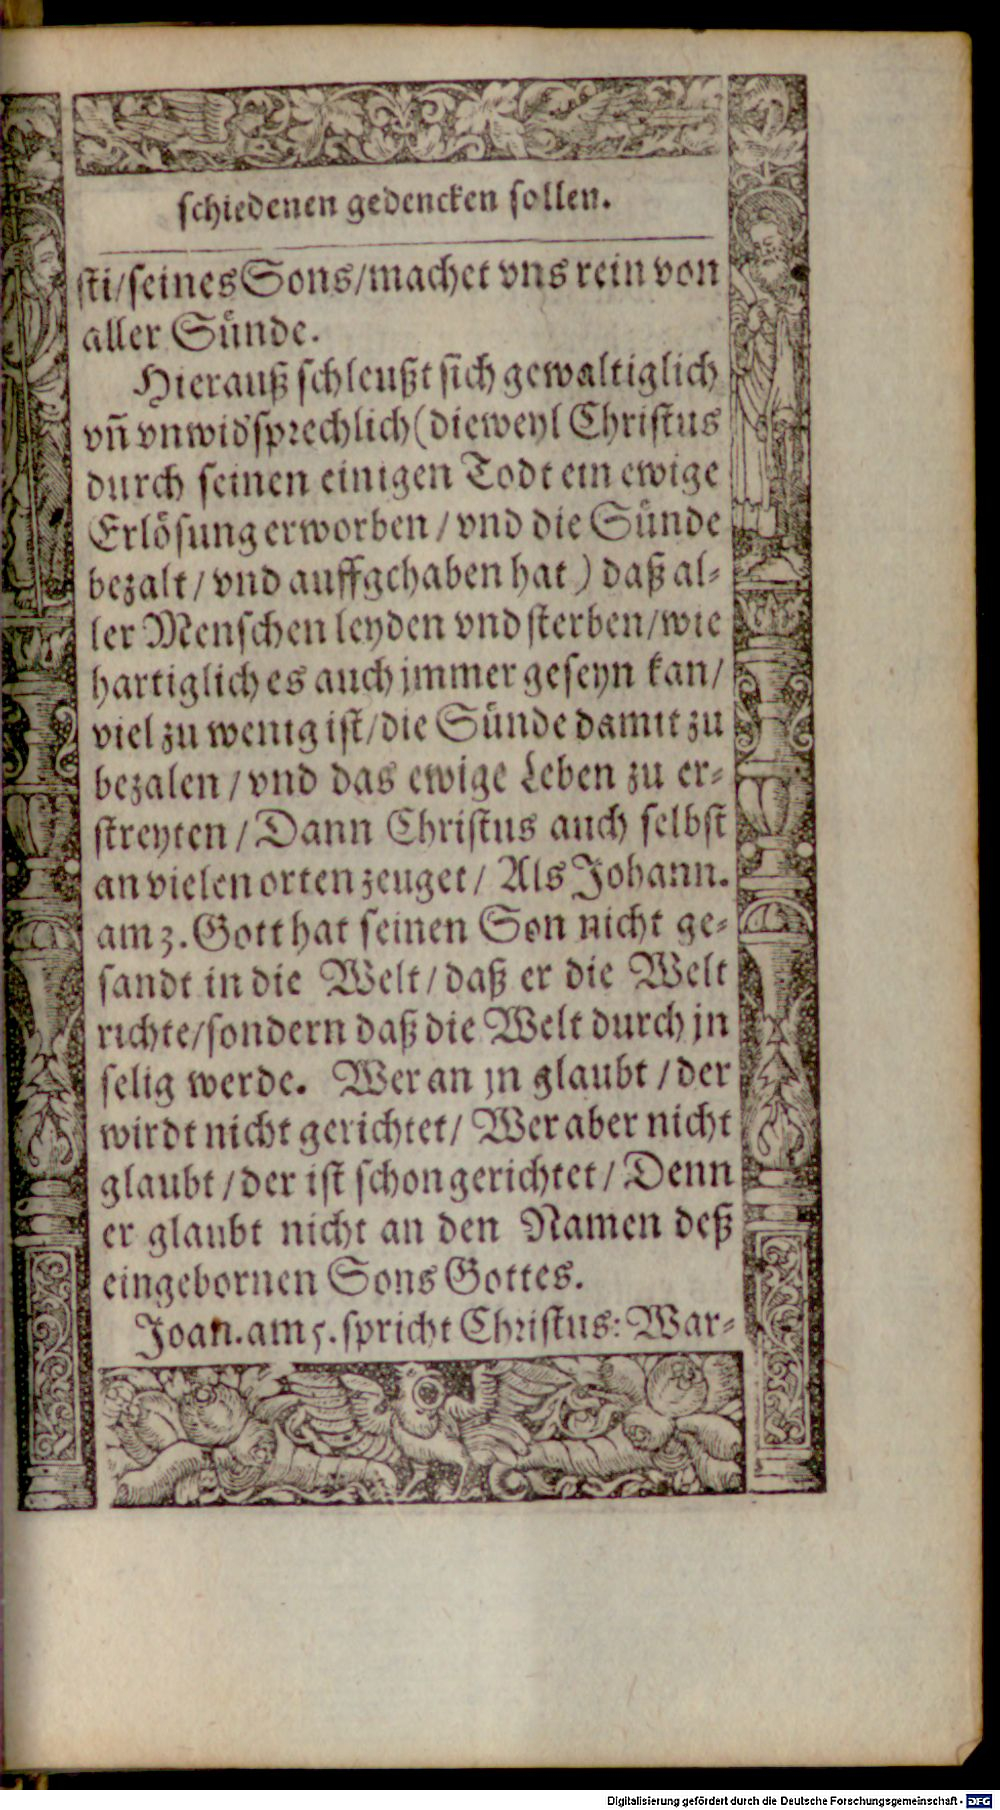 schiedenen gedencken sollen.
sti/seines Sons/machet vns rein von
aller Sünde.
Hierauß schleußt sich gewaltiglich
vñ vnwid'sprechlich (dieweyl Christus
durch seinen einigen Todt ein ewige
Erlösung erworben / vnd die Sünde
bezalt / vnd auffgehaben hat ) daß al-
ler Menschen leyden vnd sterben/wie
hartiglich es auch jmmer geseyn kan/
viel zu wenig ist/die Sünde damit zu
bezalen / vnd das ewige Leben zu er-
streyten / Dann Christus auch selbst
an vielen orten zeuget / Als Johann.
am 3. Gott hat seinen Son nicht ge-
sandt in die Welt / daß er die Welt
richte/sondern daß die Welt durch jn
selig werde. Wer an jn glaubt / der
wirdt nicht gerichtet/ Wer aber nicht
glaubt / der ist schon gerichtet / Denn
er glaubt nicht an den Namen deß
eingebornen Sons Gottes.
Joan. am 5. spricht Christus: War-
Digitalisierung gefördert durch die Deutsche Forschungsgemeinschaft - DFG